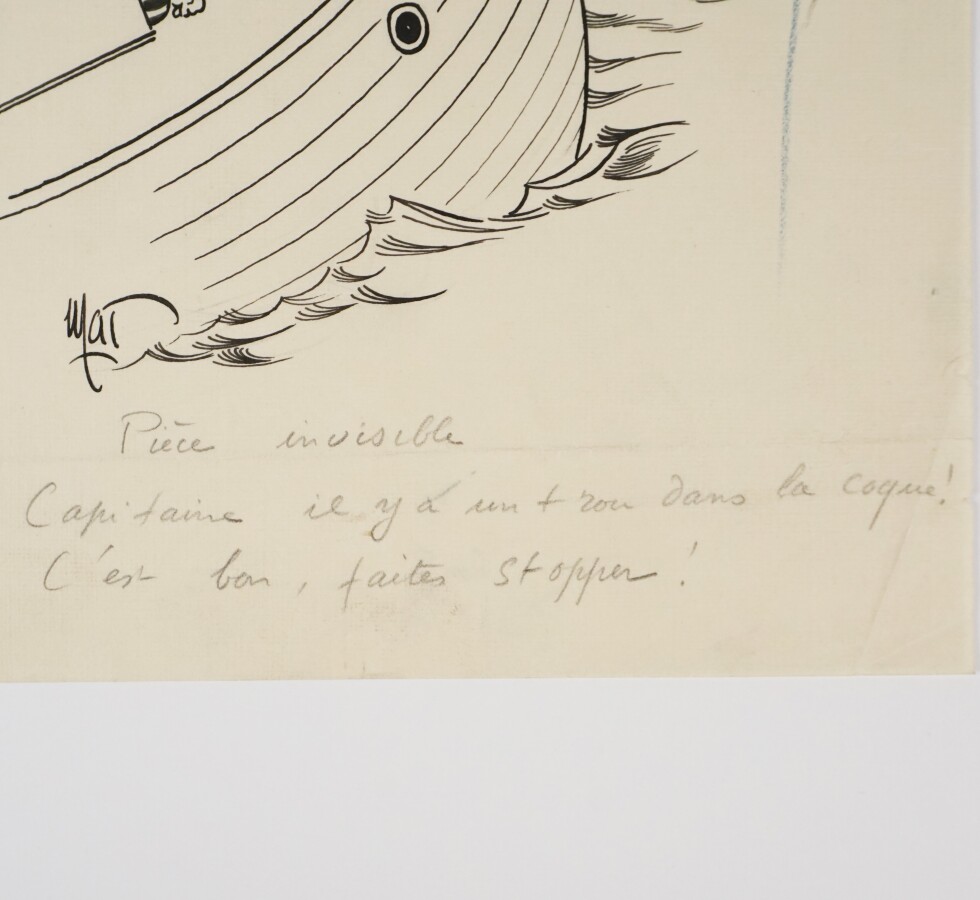 Mat
Pièce invisible
Capitaine il y á un trou dans la coque!
C'est bon, faites stopper!